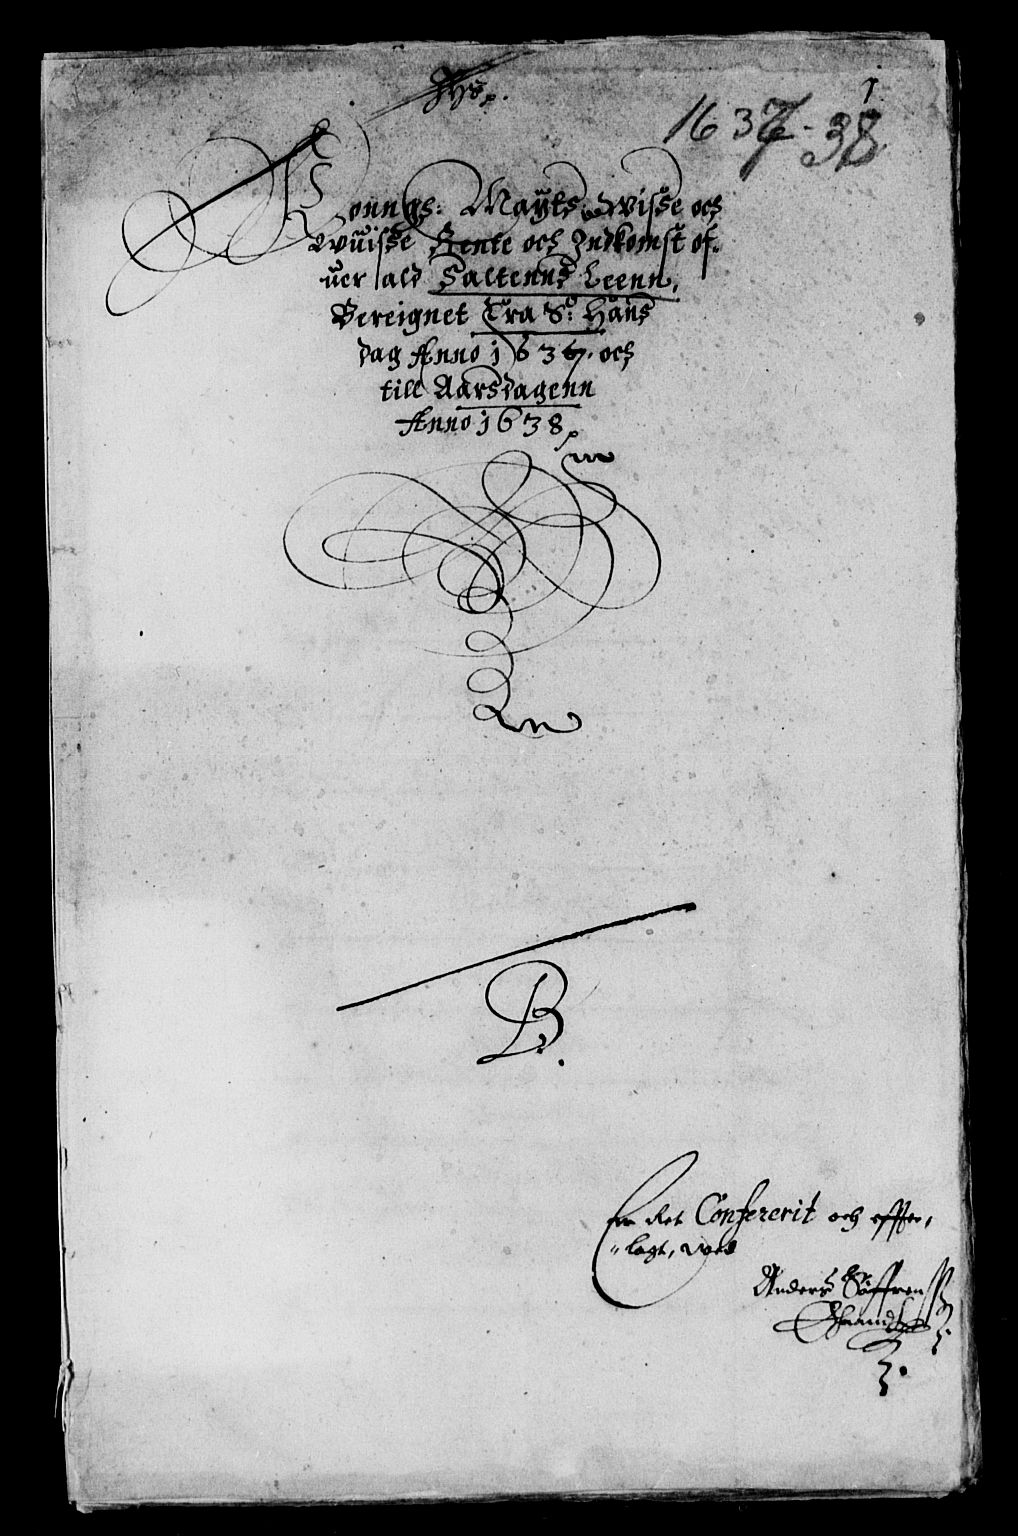 1
1637-38
Konngs: Mayts wisse och
Wuisse Rente och Indkomst of-
uer ald Saltenns Leenn,
Bereignet Fra St: Hans
dag Anno 1637. och
till Aarsdagenn
Anno 1638
B.
Er Ret Confererit och effter,
„lagt, wed
Anders Søffrenß